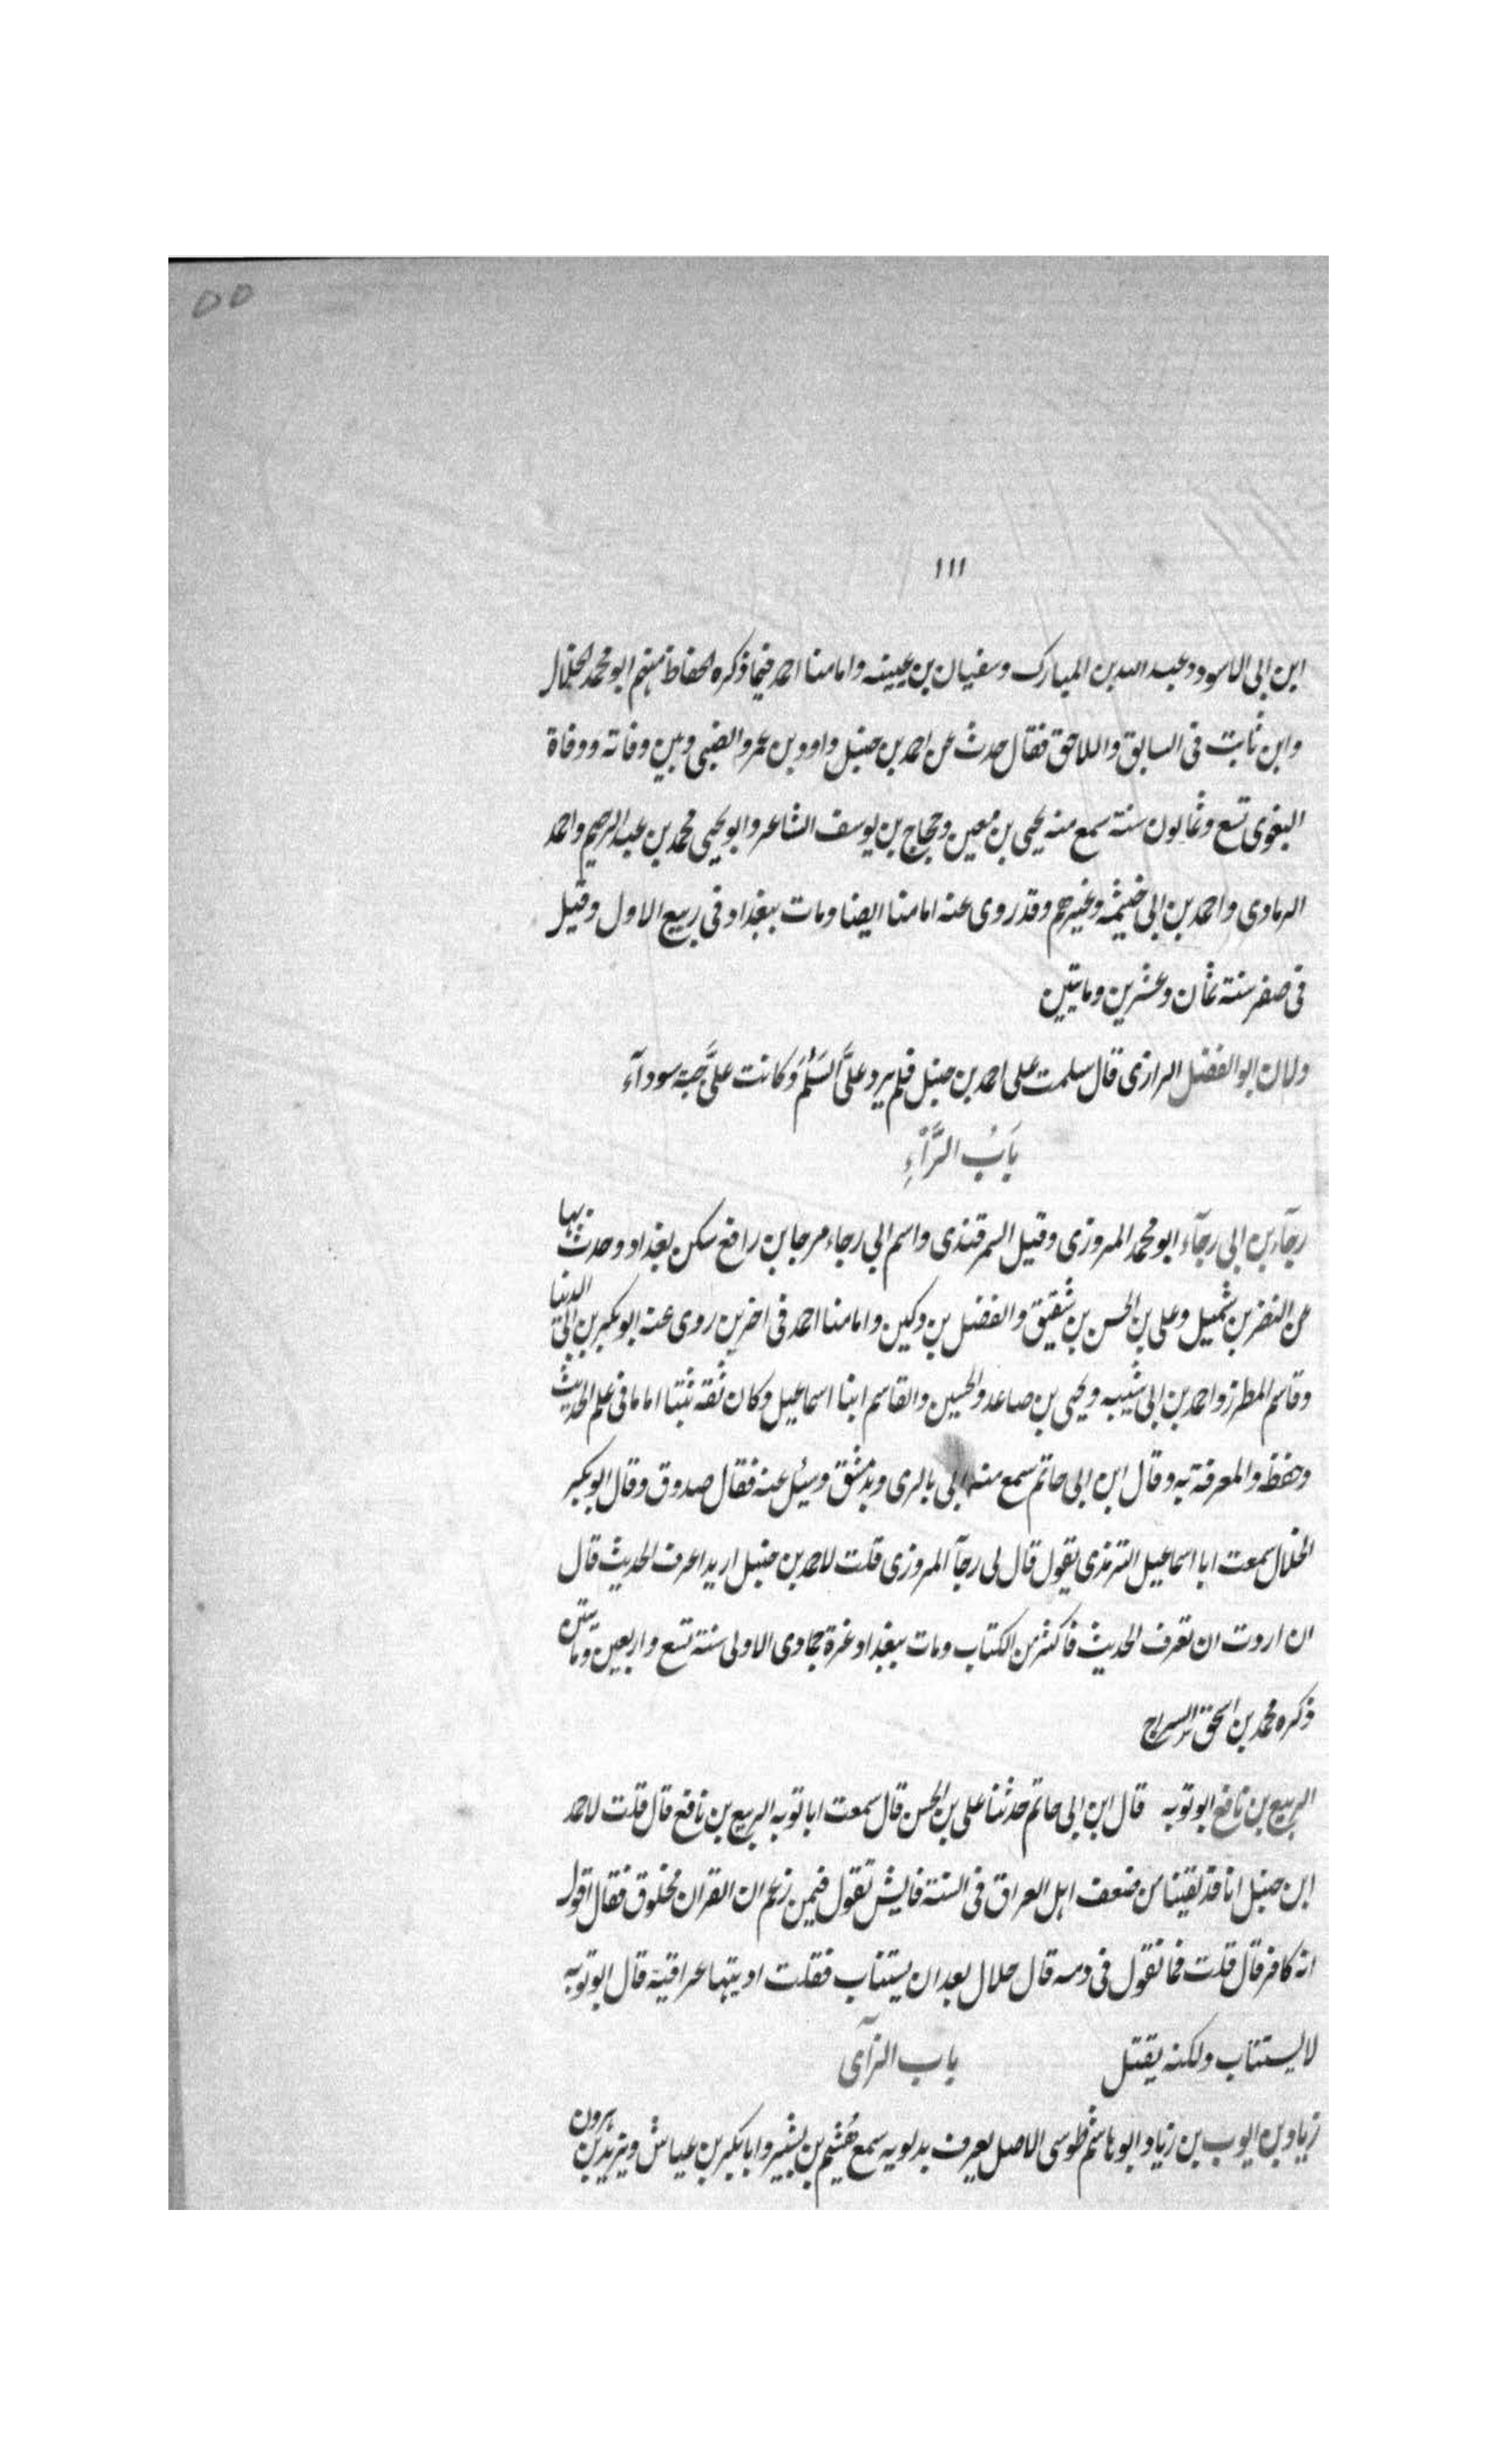 ٥٥
١١١
ابن ابى الاسود وعبد الله بن المبارك وسفيان بن عيينه وامامنا احمد فيما ذكره الحفاظ منهم ابو محمد الخلال
وابن ثابت فى السابق واللاحق فقال حدث عن احمد بن حنبل داود بن عمرو الضبى وبين وفاته ووفاة
البغوى تسع وثمانون سنة سمع منه يحيى بن معين وحجاج بن يوسف الشاعر وابو يحيى محمد بن عبد الرحيم واحمد
الرمادى واحمد بن ابى خيثمه وغيرهم وقد روى عنه امامنا ايضا ومات ببغداد فى ربيع الاول وقيل
فى صفر سنة ثمان وعشرين وماتين
دلان ابو الفضل الرازى قال سلمت على احمد بن حنبل فلم يرد علىَّ السَلَمُ وكانت علىَّ جبة سودآء
بَابُ الرَّآءِ
رجآء بن ابى رجآء ابو محمد المروزى وقيل السمرقندى واسم ابى رجاء مرجا بن رافع سكن بغداد وحدث بها
عن النضر بن شميل وعلى بن الحسن بن شقيق والفضل بن دكين وامامنا احمد فى اخرين روى عنه ابو بكر بن ابى الدنيا
وقاسم المطرز واحمد بن ابى شيبه ويحيى بن صاعد والحسين والقاسم ابنا اسماعيل وكان ثقه ثبتا اماما فى علم الحديث
وحفظه والمعرفة به وقال ابن ابى حاتم سمع منه ابى بالرى وبدمشق وسئل عنه فقال صدوق وقال ابو بكر
الخلال سمعت ابا اسماعيل الترمذى يقول قال لى رجآ المروزى قلت لاحمد بن حنبل اريد اعرف الحديث قال
ان اردت ان تعرف الحديث فاكثر من الكتاب ومات ببغداد غرة جمادى الاولى سنة تسع واربعين وماتين
ذكره محمد بن اسحق السراج
الربيع بن نافع ابو توبه قال ابن ابى حاتم حدثنا على بن الحسن قال سمعت ابا توبه الربيع بن نافع قال قلت لاحمد
ابن حنبل انا قد لقينا من ضعف اهل العراق فى السنة فايش تقول فيمن زعم ان القران مخلوق فقال اقول
انه كافر قال قلت فما تقول فى دمه قال حلال بعد ان يستتاب فقلت اديتها عراقية قال ابو توبه
لا يستتاب ولكنه يقتل باب الزآى
زياد بن ايوب بن زياد ابو هاشم طوسى الاصل يعرف بدلويه سمع هُشيم بن بشير وابا بكر بن عياش ويزيد بن هرون